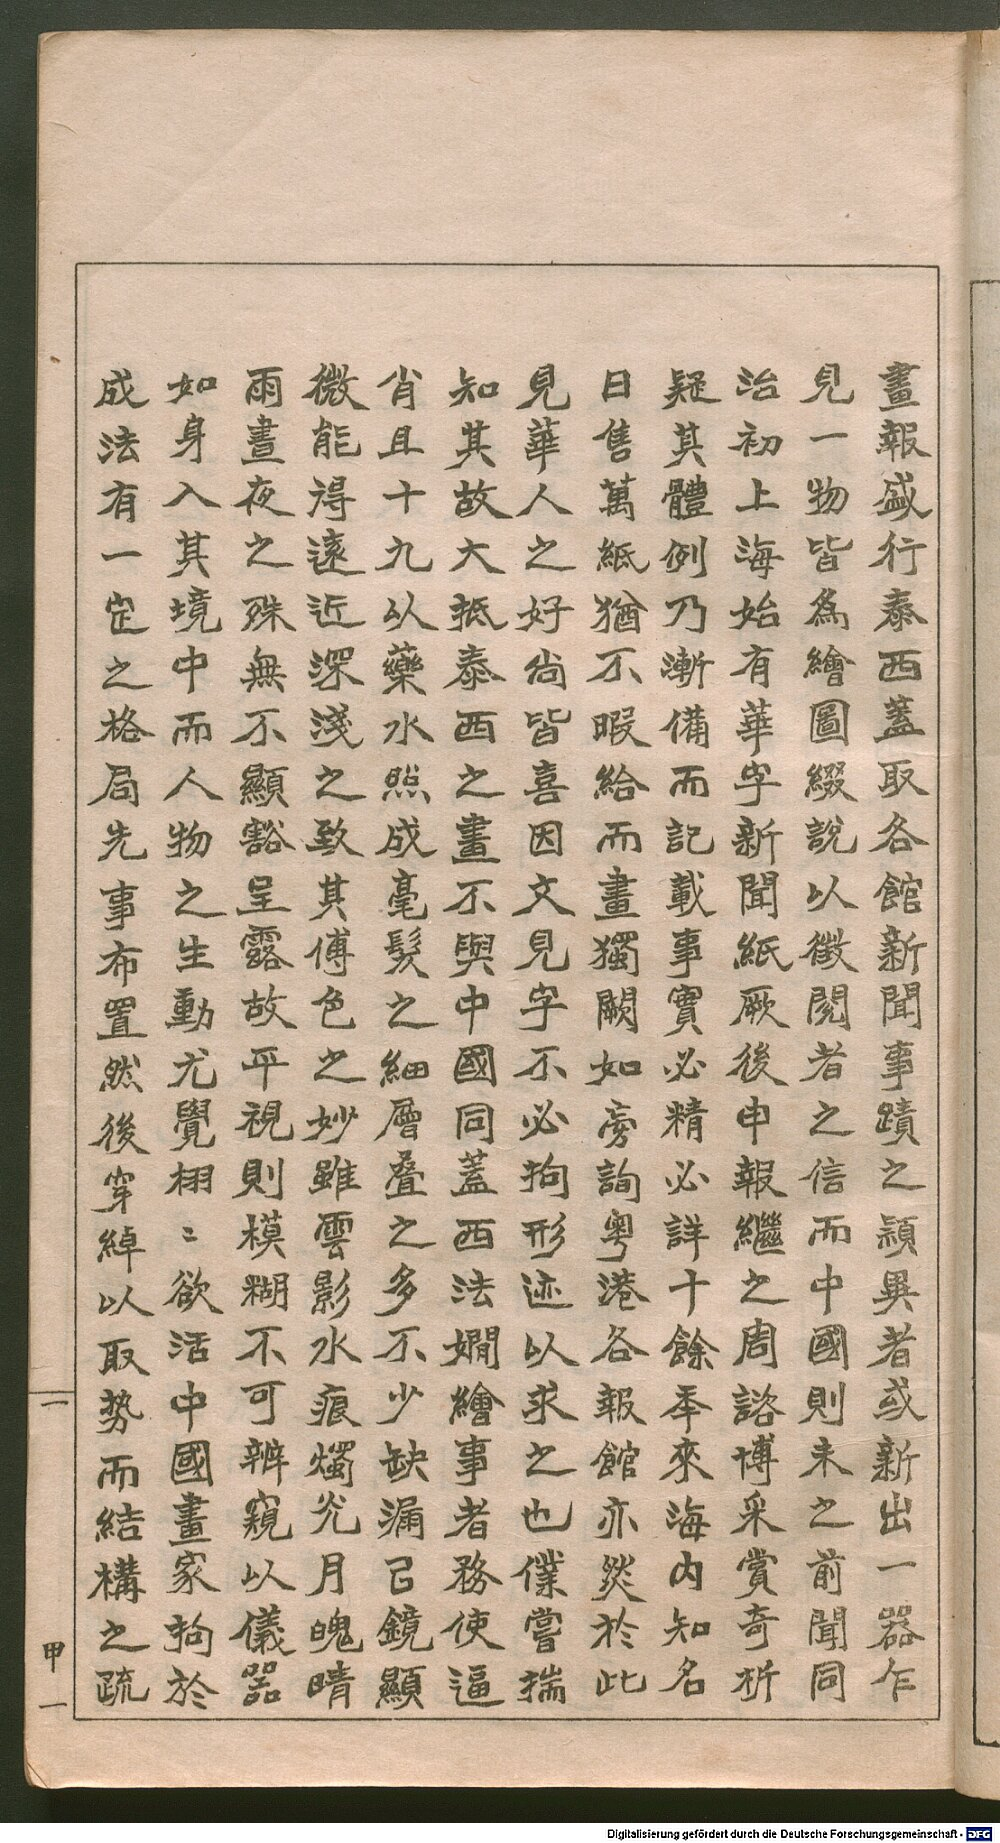 畫報盛行泰西蓋取各館新聞事蹟之穎異者或新出一器乍
見一物皆為繪圖綴說以徵閱者之信而中國則未之前聞同
治初上海始有華字新聞紙厥後申報繼之周諮博采賞奇析
疑其體例乃漸備而記載事實必精必詳十餘年來海內知名
日售萬紙猶不暇給而畫獨闕如旁詢粵港各報館亦然於此
見華人之好尚皆喜因文見字不必拘形迹以求之也僕嘗揣
知其故大抵泰西之畫不與中國同蓋西法嫻繪事者務使逼
肖且十九以藥水照成毫髮之細層叠之多不少缺漏以鏡顯
微能得遠近深淺之致其傅色之妙雖雲影水痕燭光月魄晴
雨晝夜之殊無不顯豁呈露故平視則模糊不可辨窺以儀器
如身入其境中而人物之生動尤覺栩〻欲活中國畫家拘於
成法有一定之格局先事布置然後穿綽以取勢而結構之疏
一
甲一
Digitalisierung gefördert durch die Deutsche Forschungsgemeinschaft - DFG